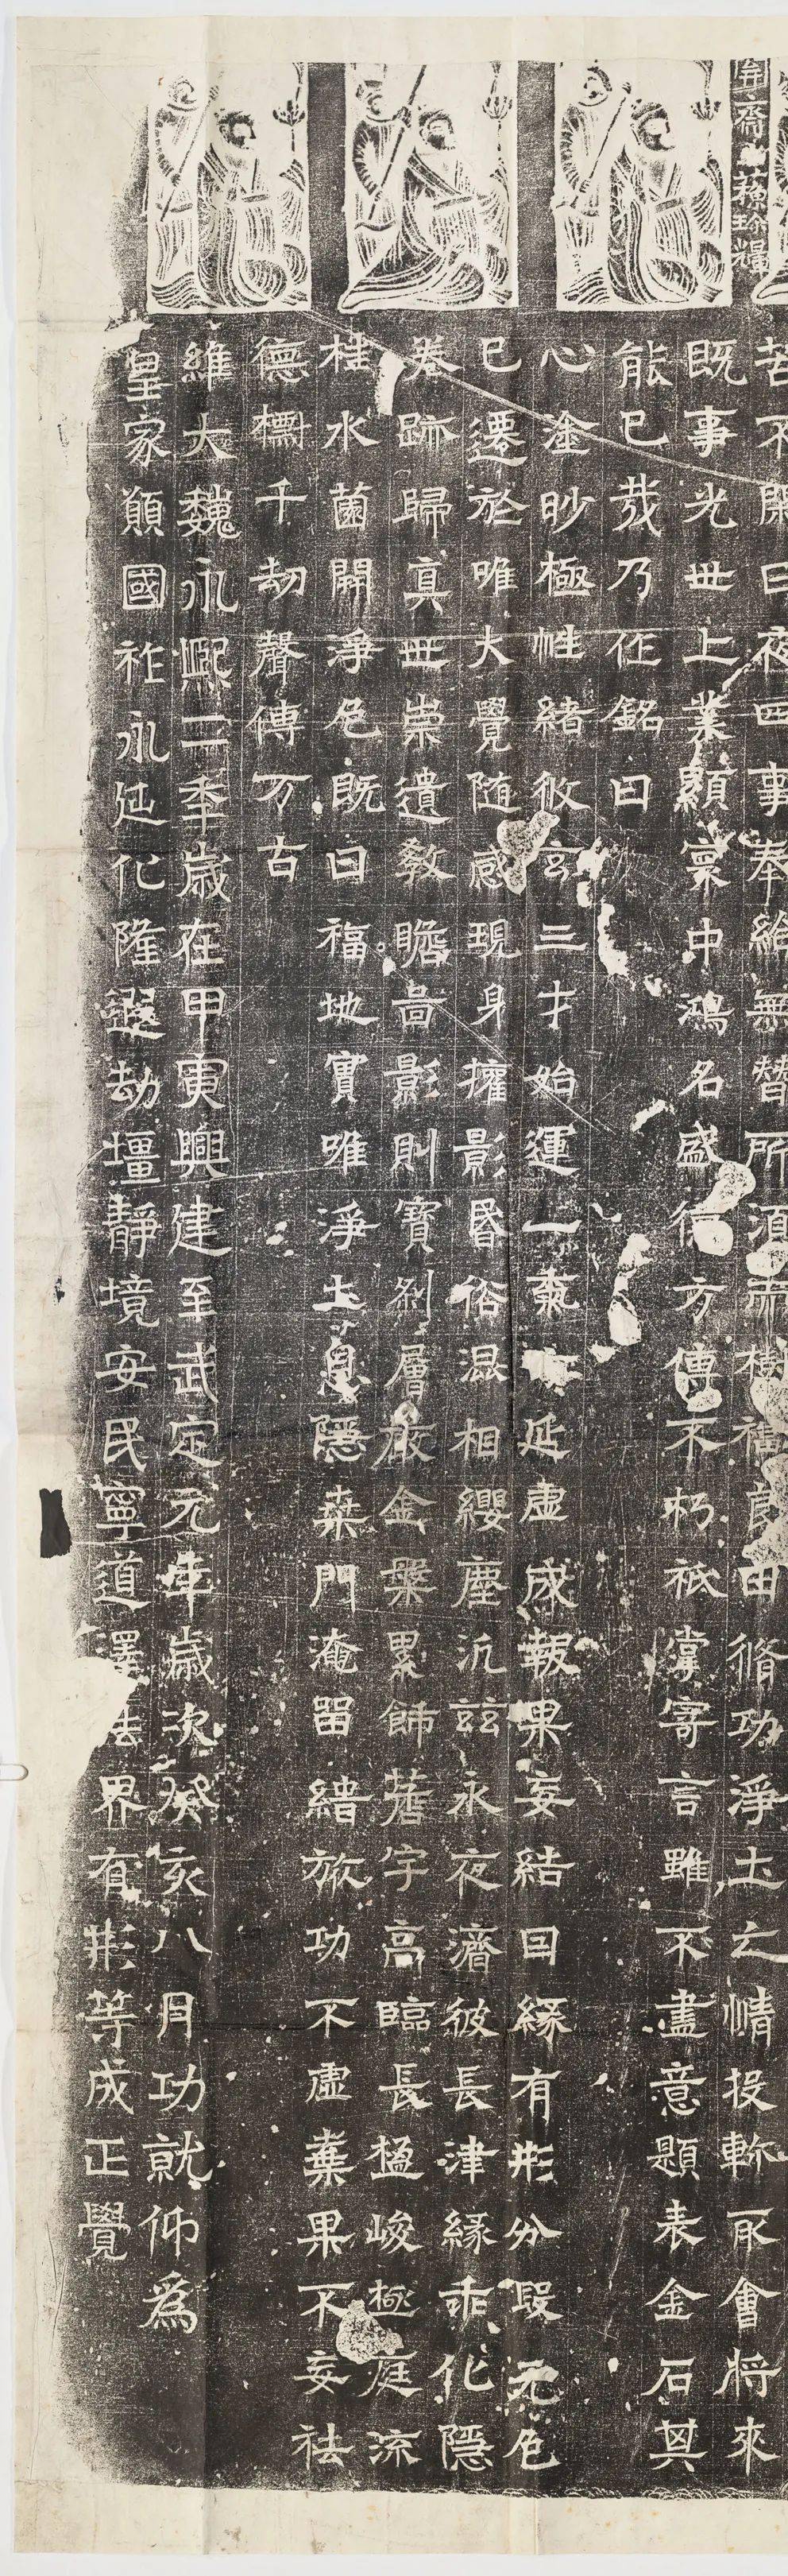 齋主蘇珍糧
苦不日夜四事奉給無替所須福田脩功淨土之情投軫取會將來
既事光世上業顯寰中鴻名盛衍方傳不朽祇掌寄言雖不盡意題表金石其
能已哉乃作銘曰
心塗眇極性緒攸玄二才始運一氣延虛成報果妄結因緣有形分段元色
已遷於唯大覺随感現身擢影昏俗混相纓塵沉茲永夜濟彼長津緣乖化隱
跡歸真世崇遺教瞻啚影則寶剎層嚴金槃累飾簷宇高臨長楹峻極庭流
桂水菌開淨色既曰福地實唯淨土息隱桒門淹留緒旅功不虛棄果不妄祛
德檦千劫聲傳万古
維大魏永熈二秊歲在甲寅興建至武定元年歲次癸亥八月功就仰為
皇家顓國祚永延化隆遐劫壃靜境安民寧道澤法界有形等成正覺